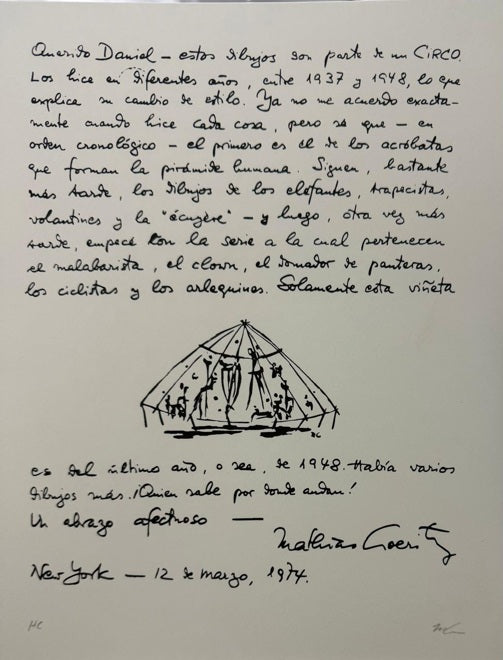 Querido Daniel – estos dibujos son parte de un CIRCO.
Los hice en diferentes años, entre 1937 y 1948, lo que
explica su cambio de estilo. Ya no me acuerdo exacta-
mente cuando hice cada cosa, pero sé que – en
orden cronológico – el primero es él de los acróbatas
que forman la pirámide humana. Siguen, bastante
más tarde, los dibujos de los elefantes, trapecistas,
volantines y la "écuyère" – y luego, otra vez más
tarde, empecé con la serie a la cual pertenecen
el malabarista, el clown, el domador de panteras,
los ciclistas y los arlequines. Solamente esta viñeta
es del último año, o sea, de 1948. Había varios
dibujos más. ¡Quien sabe por donde andan!
Un abrazo afectuoso —
Mathias Goeritz
New York — 12 de marzo, 1974.
HC